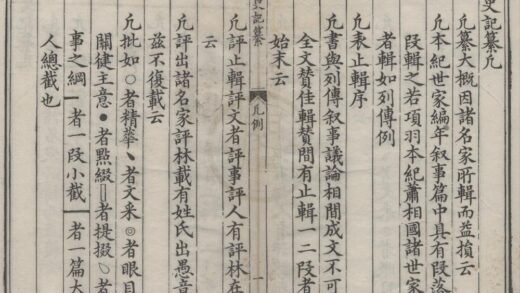 史記纂凡
凡纂大概因諸名家所輯而益損云
凡本紀世家編年叙事篇中具有段落
段輯之若項羽本紀蕭相國諸世家
者輯如列傳例
凡表止輯序
凡書與列傳叙事議論相間成文不可
全文贊佳輯贊間有止輯一二段者
始末云
凡例
一
凡評止輯評文者評事評人有評林在
云
凡評出諸名家評林載有姓氏出愚音
兹不復載云
凡批如○者精華﹅者文采◎者眼目
關鍵主意●者點綴‖者提掇﹆者
事之綱▏者一段小截│者一篇大
人總截也